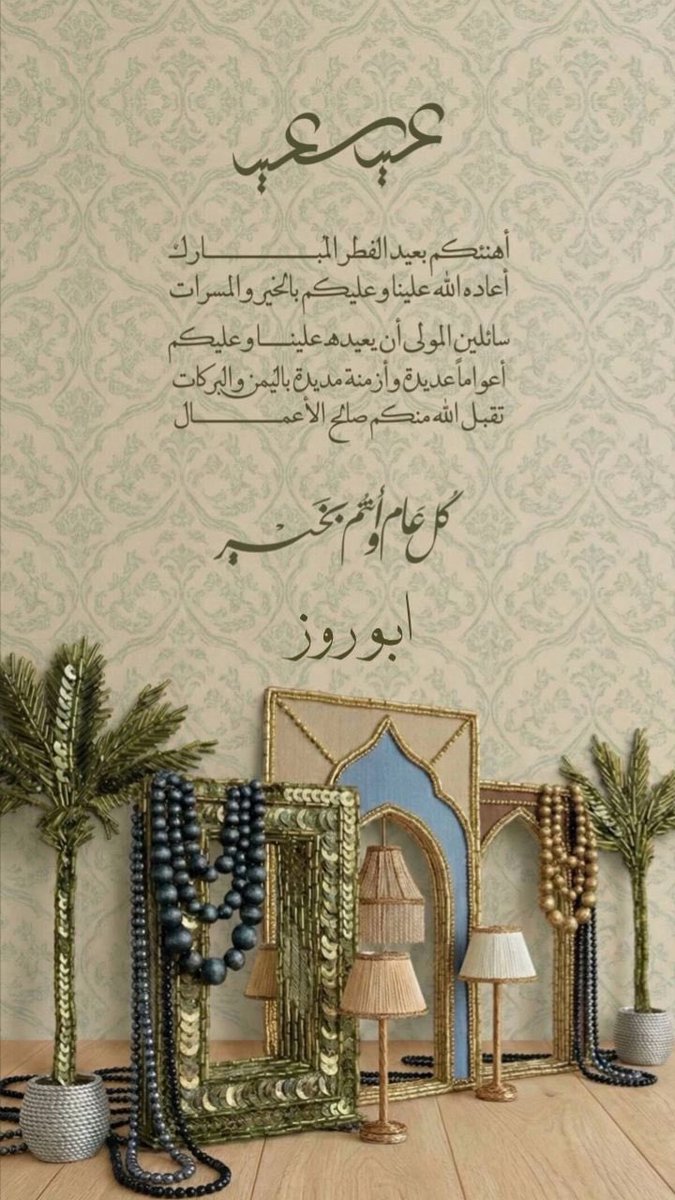 عيد سعيد
أهنئكم بعيد الفطر المبـــــــارك
أعاده الله علينا وعليكم بالخير والمسرات
سائلين المولى أن يعيده علينـــا وعليكم
أعواماً عديدة وأزمنة مديدة باليمن والبركات
تقبل الله منكم صالح الأعمـــــــال
كُل عَام وأنتُم بخَيــر
ابو روز